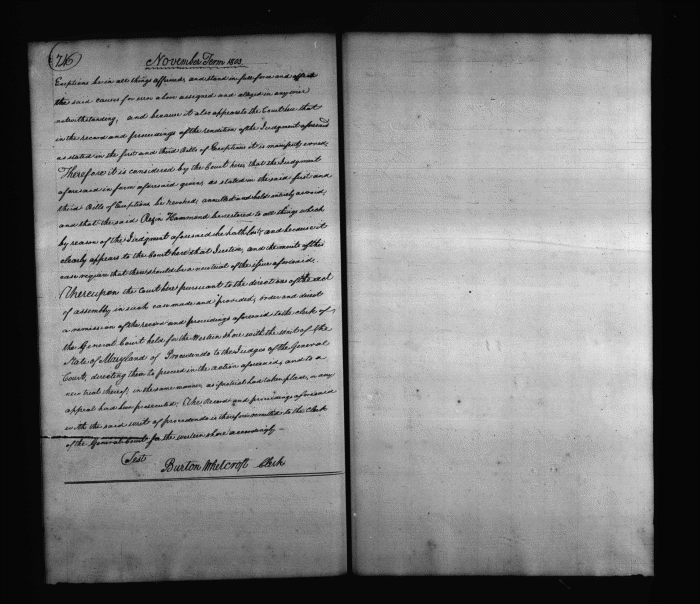 (746)
November Term 1803
Exceptions be in all things affirmed, and stand in full force and effect
the said causes for error above assigned and alleged in any wise
notwithstanding, and because it also appears to the Court here that
in the record and proceedings of the rendition of the Judgment aforesaid
as stated in the first and third Bills of Exceptions it is manifest erred,
Therefore it is considered by the Court here, that the Judgment
aforesaid in form aforesaid given as stated in the said first and
third Bills of Exceptions be revoked, annulled and held entirely as void,
and that the said Rezin Hammond be restored to all things which
by reason of the Judgment aforesaid he hath lost, and because it
clearly appears to the Court here that Justice, and the merits of this
case require that there should be a new trial of the issue aforesaid.
Whereupon the Court here pursuant to the directions of the act
of assembly in such case made and provided, order and direct
a remission of the record and proceedings aforesaid to the clerk of
the General Court held for the Western Shore with the writ of the
State of Maryland of Procedendo to the Judges of the General
Court, directing them to proceed in the action aforesaid, and to a
new trial thereof, in the same manner, as if no trial had taken place, or any
appeal had been prosecuted, The record and proceedings aforesaid
with the said writ of procedendo is therefore remitted to the Clerk
of the General Court for the western shore accordingly —
Test
Burton Whetcroft Clerk